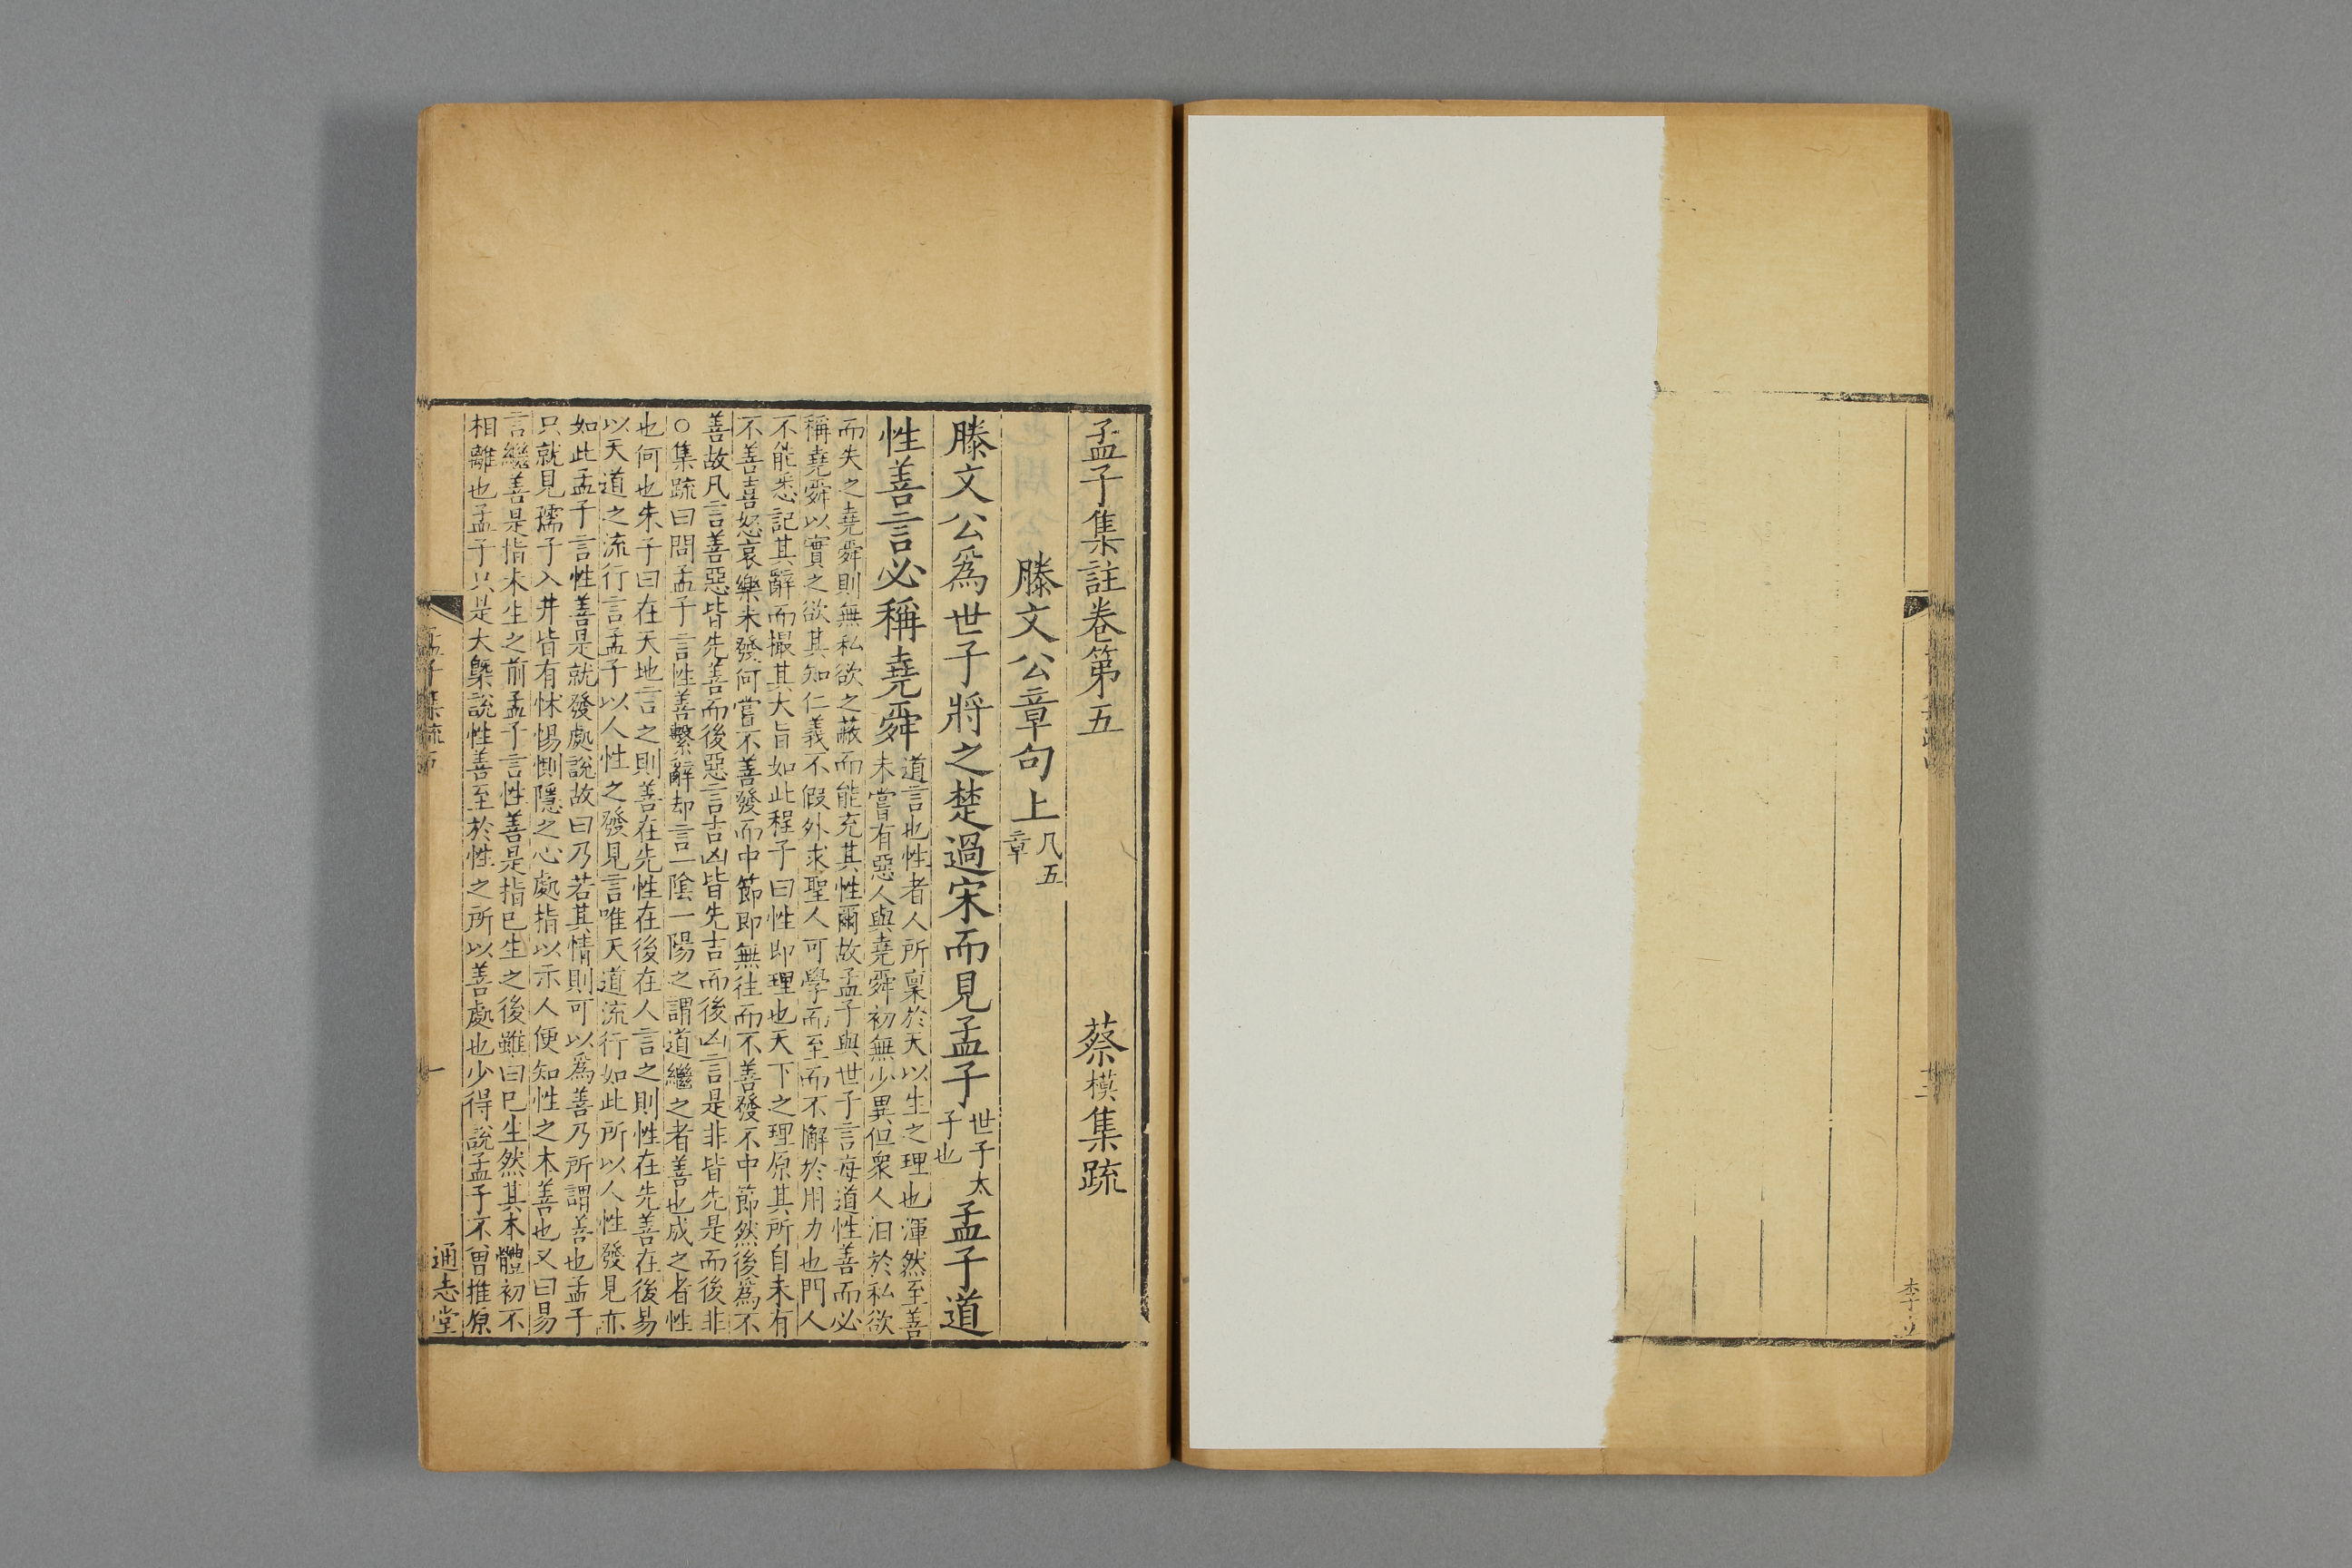 李立
孟子集註卷第五
蔡模集疏
滕文公章句上凡五章
滕文公爲世子將之楚過宋而見孟子世子太子也孟子道
性善言必稱堯舜
道言也性者人所稟於天以生之理也渾然至善
未嘗有惡人與堯舜初無少異但衆人汩於私欲
而失之堯舜則無私欲之蔽而能充其性爾故孟子與世子言每道性善而必
稱堯舜以實之欲其知仁義不假外求聖人可學而至而不懈於用力也門人
不能悉記其辭而撮其大旨如此程子曰性即理也天下之理原其所自未有
不善喜怒哀樂未發何嘗不善發而中節即無往而不善發不中節然後爲不
善故凡言善惡皆先善而後惡言吉凶皆先吉而後凶言是非皆先是而後非
○集疏曰問孟子言性善繫辭却言一陰一陽之謂道繼之者善也成之者性
也何也朱子曰在天地言之則善在先性在後在人言之則性在先善在後易
以天道之流行言孟子以人性之發見言唯天道流行如此所以人性發見亦
如此孟子言性善是就發處說故曰乃若其情則可以爲善乃所謂善也孟子
只就見孺子入井皆有怵惕惻隱之心處指以示人便知性之本善也又曰易
言繼善是指未生之前孟子言性善是指已生之後雖曰已生然其本體初不
相離也孟子只是大槩說性善至於性之所以善處也少得說孟子不曾推原
孟子集疏五
一
通志堂